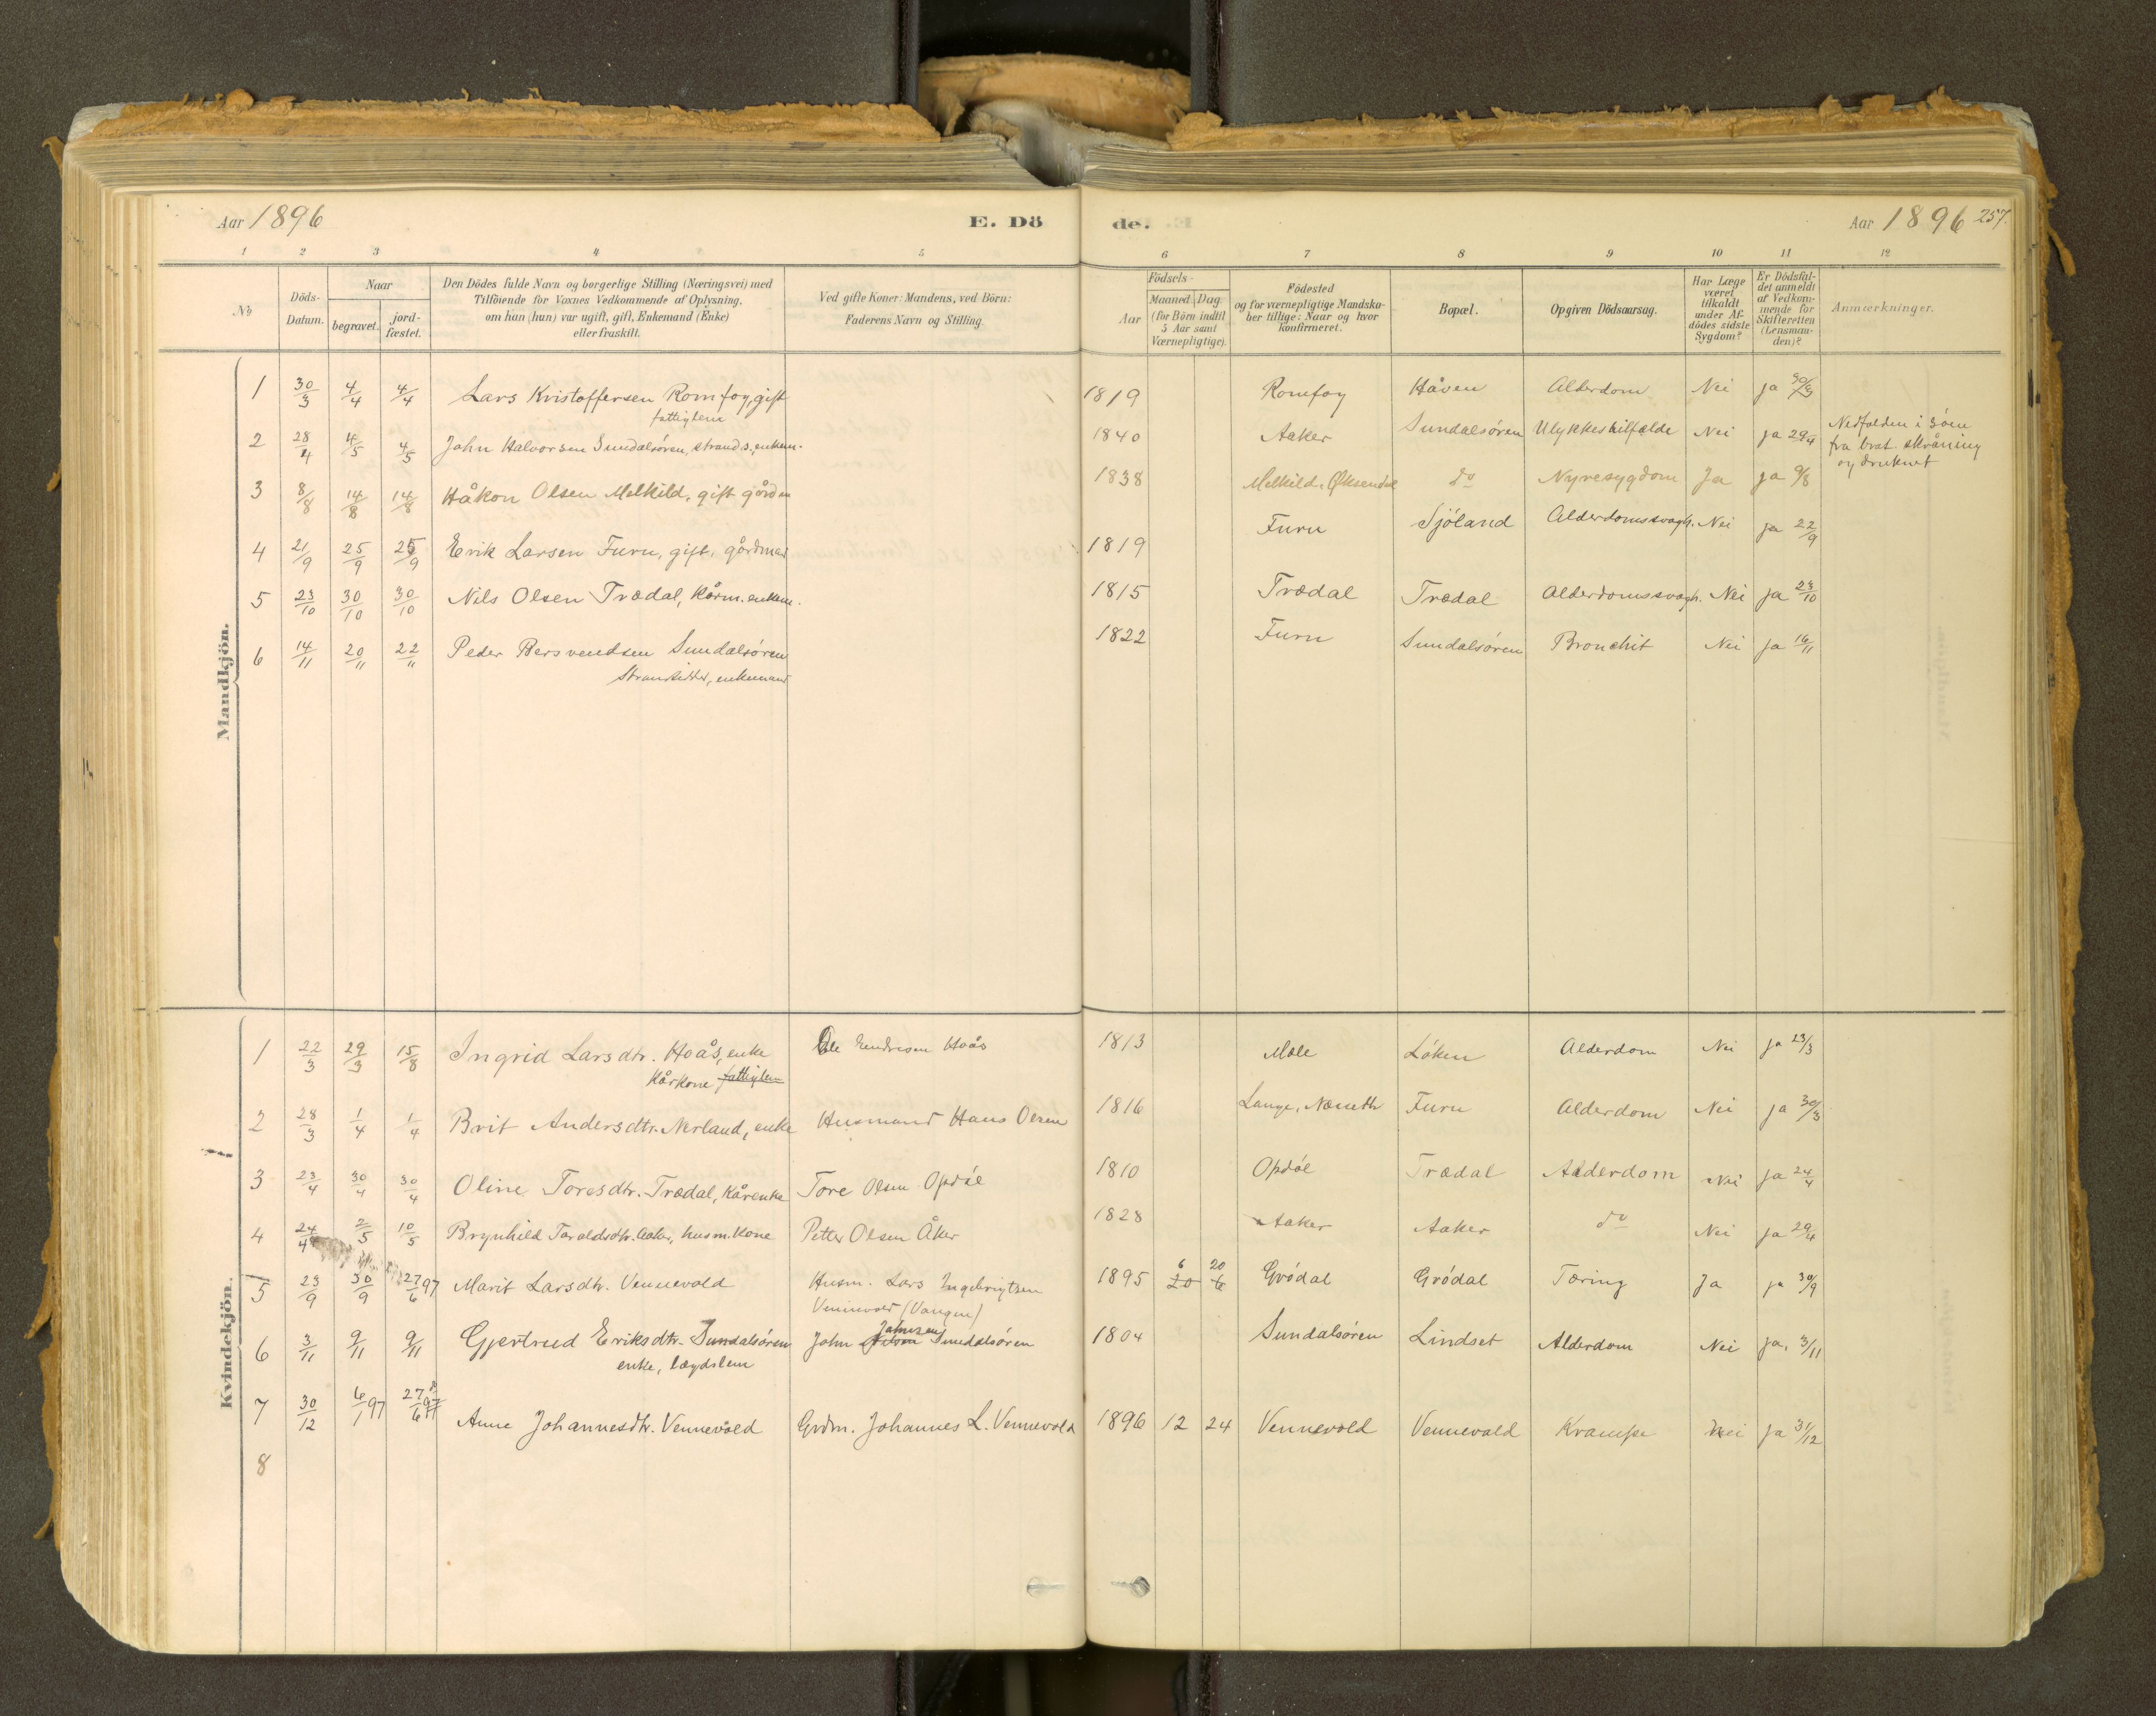 Aar 1896
E. Dö
de.
Aar 1896 257.
1 2 3 4 5 6 7 8 9 10 11 12
No
Döds-Datum.
Naar
begravet.
jord-fæstet.
Den Dödes fulde Navn og borgerlige Stilling (Næringsvei) med
Tilföiende for Voxnes Vedkommende af Oplysning,
om han (hun) var ugift, gift, Enkemand (Enke)
eller fraskilt.
Ved gifte Koner: Mandens, ved Börn:
Faderens Navn og Stilling.
Födsels-
Aar
Maaned. Dag.
(for Börn indtil
5 Aar samt
Værnepligtige).
Födested
og for værnepligtige Mandska-
ber tillige: Naar og hvor
konfirmeret.
Bopæl.
Opgiven Dödsaarsag.
Har Læge
været
tilkaldt
under Af-
dödes sidste
Sygdom?
Er Dödsfal-
det anmeldt
af Vedkom-
mende for
Skifteretten
(Lensman-
den)?
Anmærkninger.
Mandkjön.
1 30/3 4/4 4/4 Lars Kristoffersen Romfoy, gift 1819 Romfoy Håven Alderdom Nei ja 30/3
fattiglem
2 28/4 4/5 4/5 John Halvorsen Sundalsören, strands., enkem. 1840 Aaker Sundalsören Ulykkestilfælde Nei ja 29/4 Nedfalden i Söen
fra brat skråning
og druknet
3 8/8 14/8 14/8 Håkon Olsen Melkild, gift gårdm 1838 Melkild, Øksendal do Nyresygdom Ja ja 9/8
4 21/9 25/9 25/9 Erik Larsen Furu, gift, gårdmand 1819 Furu Sjöland Alderdomssvagh. Nei ja 22/9
5 23/10 30/10 30/10 Nils Olsen Trædal, Kårm. enkem. 1815 Trædal Trædal Alderdomssvagh. Nei ja 23/10
6 14/11 20/11 22/11 Peder Bersvendsen Sundalsören 1822 Furu Sundalsören Bronchit Nei ja 16/11
Strandsidder, enkemand
Kvindekjön.
1 22/3 29/3 15/8 Ingrid Larsdtr. Hoås, enke Ole Endresen Hoås 1813 Mæle Löken Alderdom Nei ja 23/3
Kårkone fattiglem
2 28/3 1/4 1/4 Brit Andersdtr. Nerland, enke Husmand Hans Olsen 1816 Lange, Næseth Furu Alderdom Nei ja 30/3
3 23/4 30/4 30/4 Oline Toresdtr. Trædal, Kårenke Tore Olsen Opdöl 1810 Opdöl Trædal Alderdom Nei ja 24/4
4 24/4 2/5 10/5 Brynhild Taraldsdtr. Aaker, husm. kone Petter Olsen Åker 1828 Aaker Aaker do Nei ja 29/4
5 23/9 30/9 27/6 97 Marit Larsdtr. Vennevold Husm. Lars Ingebrigtsen 1895 6 20 20 6 Grödal Grödal Tæring Ja ja 30/9
Vennevold (Vangen)
6 3/11 9/11 9/11 Gjertrud Eriksdtr. Sundalsören John Johnsen Sundalsören 1804 Sundalsören Lindset Alderdom Nei ja, 3/11
enke, lægdslem
7 30/12 6/1 97 27/6 97 Anne Johannesdtr. Vennevold Grdm. Johannes L. Vennevold 1896 12 24 Vennevold Vennevold Krampe Nei ja 31/12
8